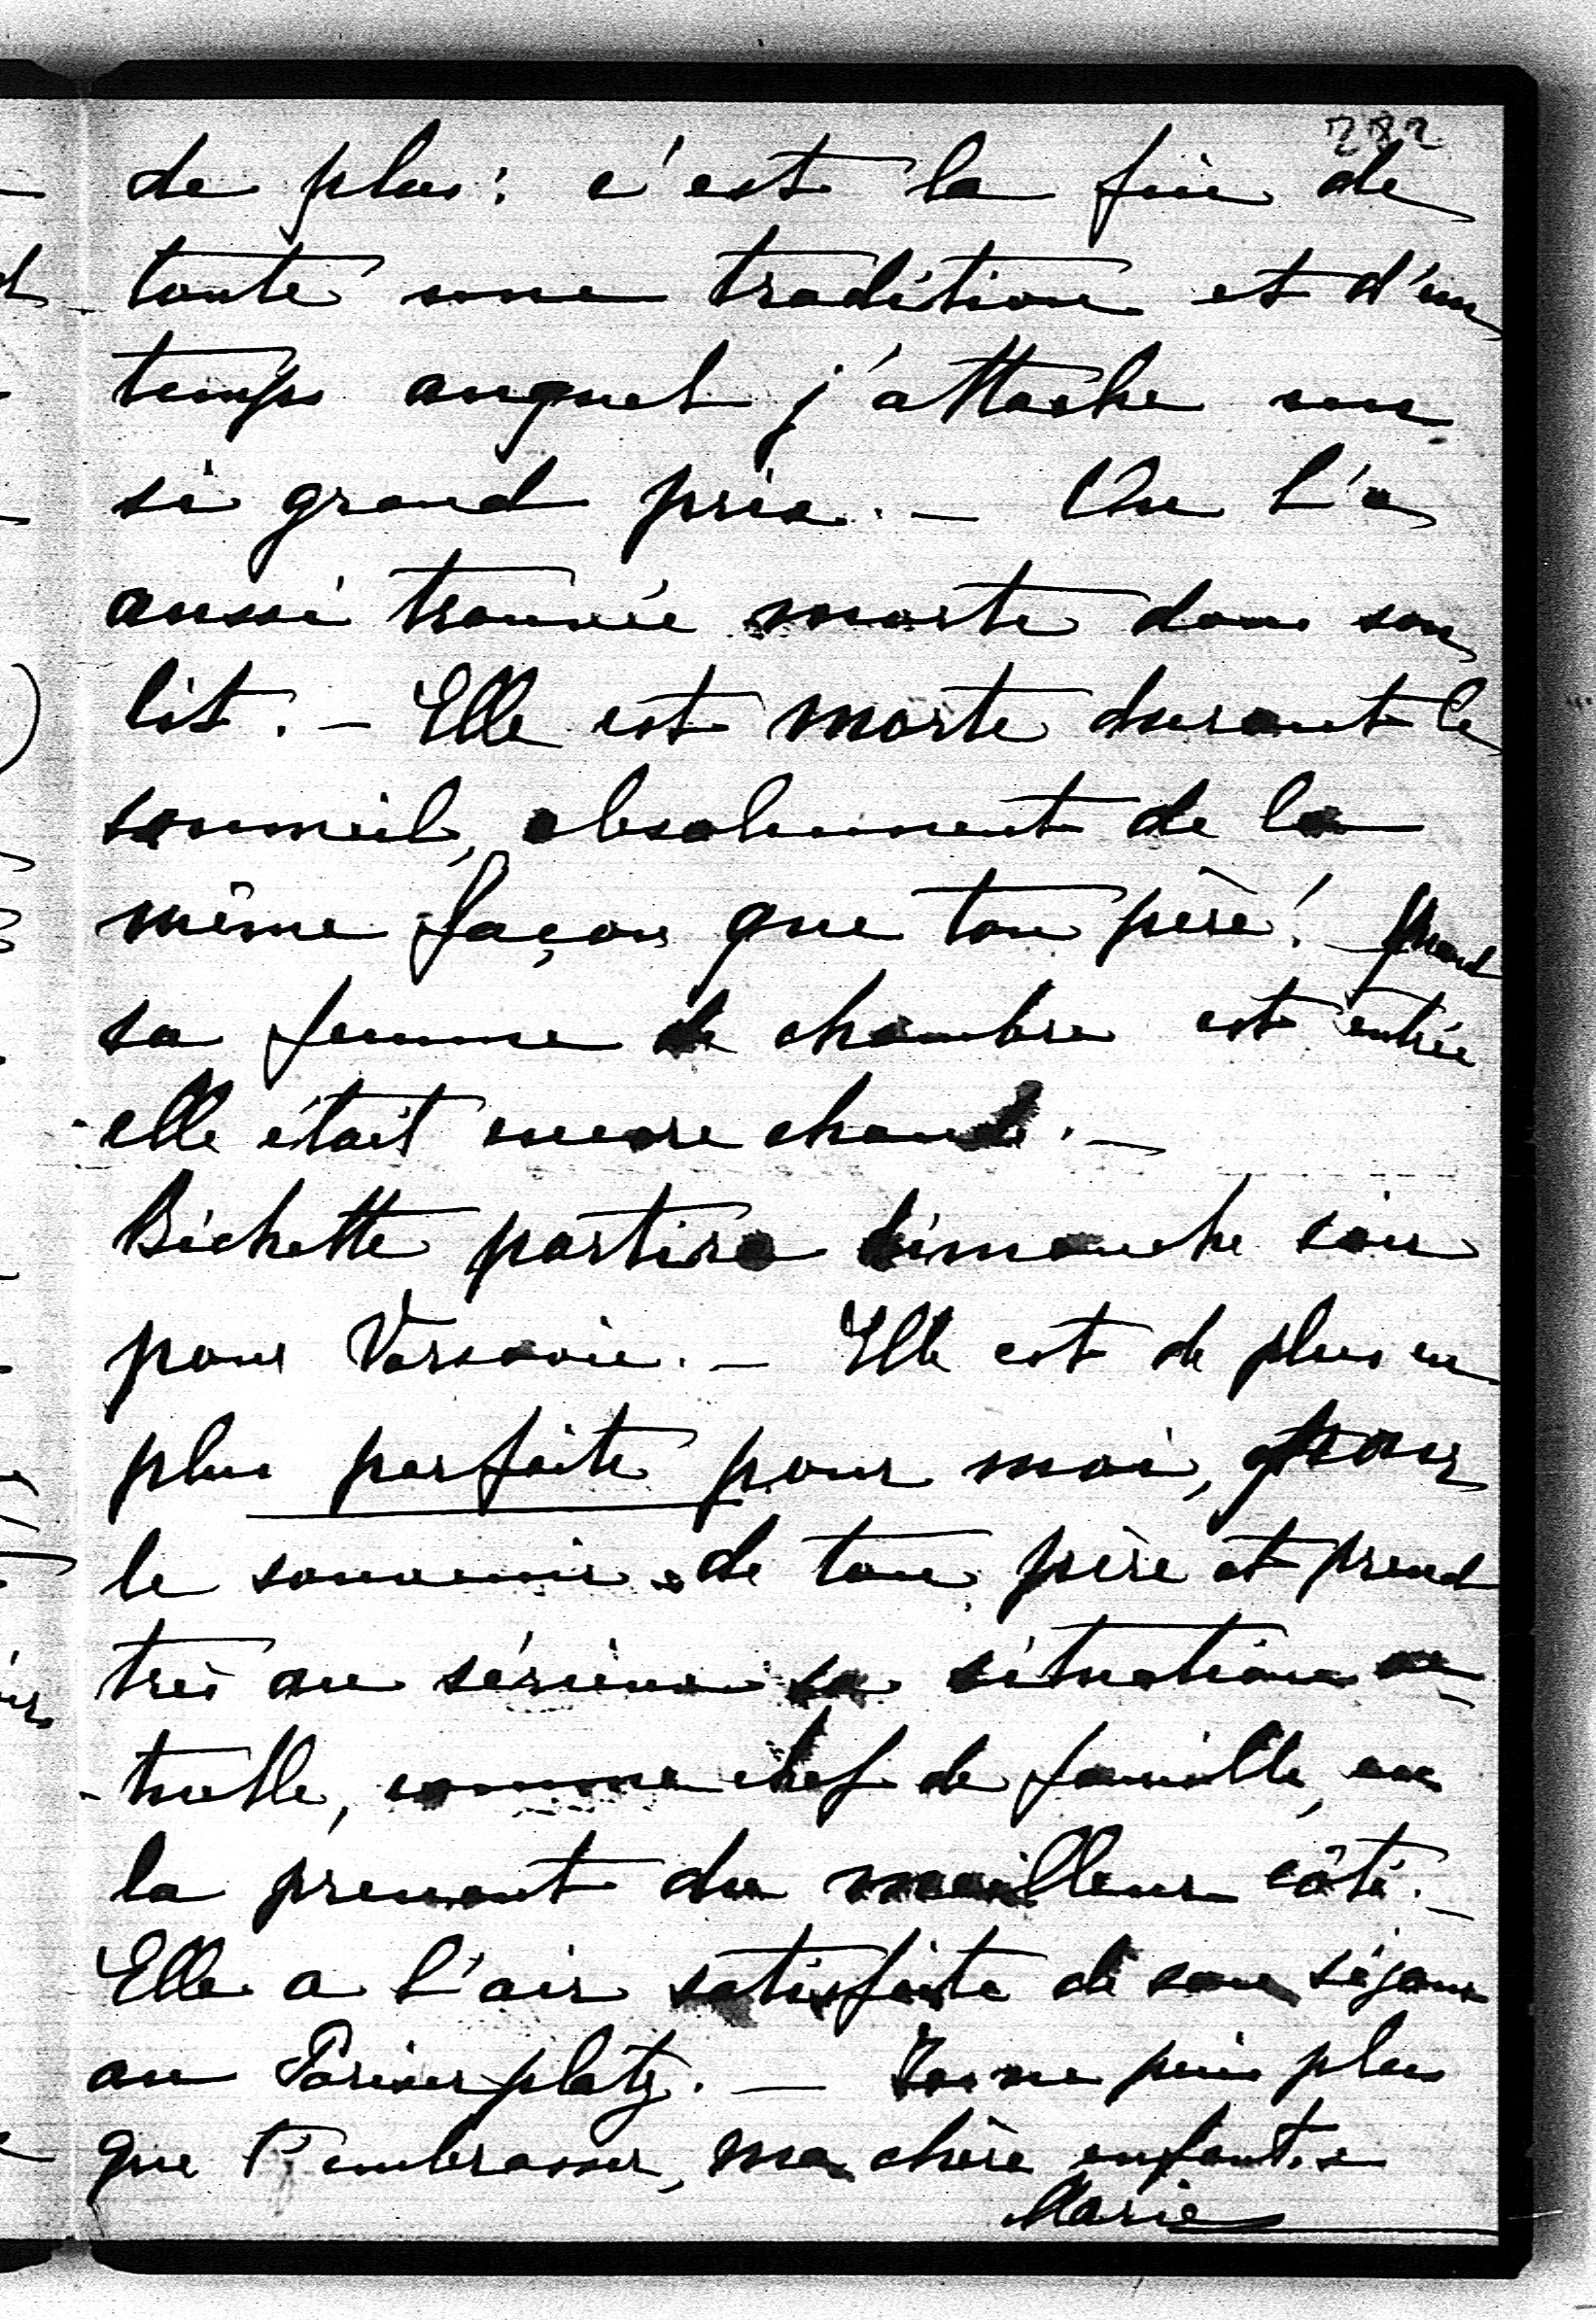 282
de plus: c'est la fin de
toute une tradition et d'un
temps auquel j'attache un
si grand prix. — On l'a
aussi trouvée morte dans son
lit. — Elle est morte durant le
sommeil, absolument de la
même façon que ton père! Quand
sa femme de chambre est entrée
elle était encore chaude. —
Bichette partira dimanche soir
pour Varsovie. — Elle est de plus en
plus parfaite pour moi, pour
le souvenir de ton père et prend
très au sérieux sa situation ac-
-tuelle, comme chef de famille, en
la prenant du meilleur côté. —
Elle a l'air satisfaite de son séjour
au Pariserplatz. — Je ne puis plus
que t'embrasser, ma chère enfant. —
Marie